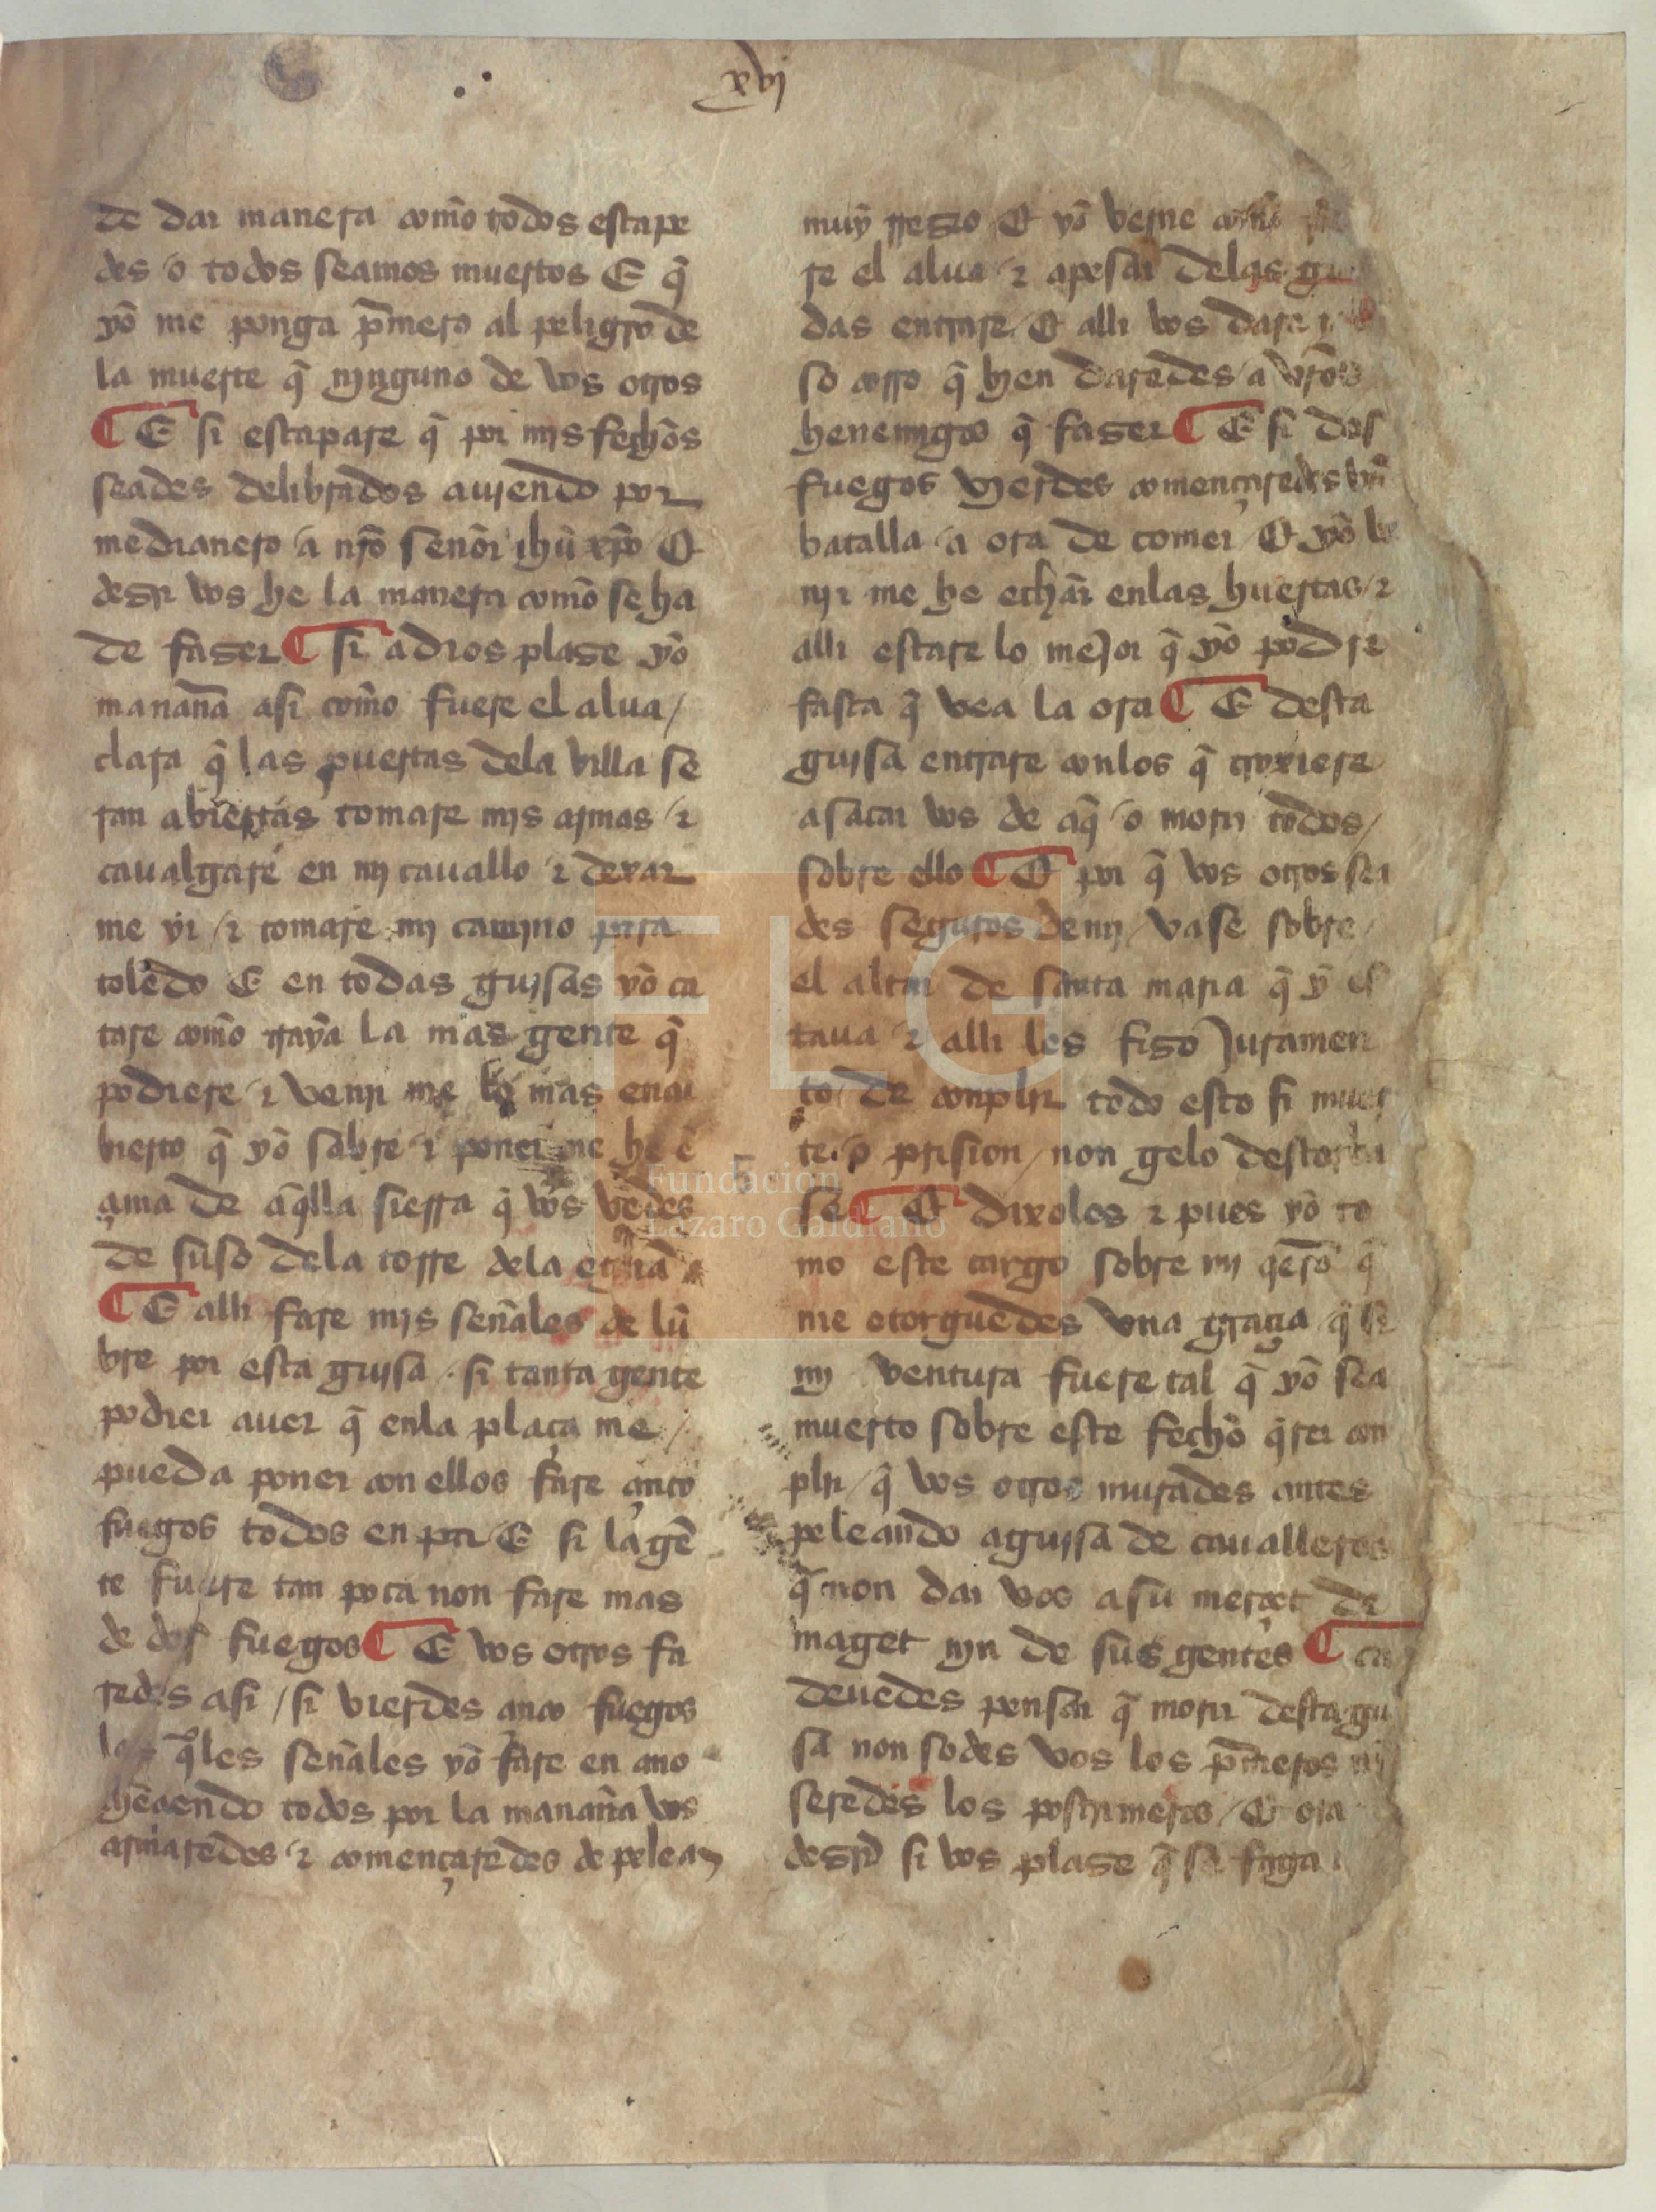 xvj
de dar manera com̃o todos escape
des o todos seamos muertos E q̃
yõ me ponga p̃mero al peligro de
la muerte q̃ njnguno de vos otros
¶ E si escapare q̃ por mjs fechõs
seades delibrados aujendo por
medianero a nr̃o señor ihũ xp̃o E
desir vos he la manera com̃o se ha
de faser ¶ si a dios plase yõ
manãna asi com̃o fuere el alua /
clara q̃ las puertas dela villa se
ran abiertas tomare mjs armas / τ
caualgare en mj cauallo τ dexar
me yr / τ tomare mj camjno para
toledo E en todas gujsas yõ ca
tare com̃o traỹa la mas gente q̃
podiere τ venjr me lo mas encu
bierto q̃ yõ sabre τ poner me he ẽ
çima de aq̃lla sierra q̃ vos vedes
de suso dela torre dela
¶ E alli fare mjs señales de lũ
bre por esta gujsa si tanta gente
podier auer q̃ enla plaça me /
pueda poner con ellos fare çinco
fuegos todos en par E si la gẽ
te fuere tan poca non fare mas
de dos fuegos ¶ E vos otros fa
redes asi / si vierdes çinco fuegos
las q̃les señales yõ fare en ano
chẽçiendo todos por la mañana vos
armaredes τ començaredes de pelear
muỹ rresio E yõ verne com̃o
re el alua τ apesar delas
das entrare E alli vos dare
so corro q̃ bien daredes a vr̃os
henemjgos q̃ faser ¶ E si dos
fuegos vierdes començaredes
batalla a ora de comer E yõ
njr me he echar enlas huertas τ
alli estare lo mejor q̃ yõ podre
fasta q̃ vea la ora ¶ E desta
gujsa entrare conlos q̃ troxiere
a sacar vos de aq̃ o morir todos /
sobre ello ¶ E por q̃ vos otros sea
des seguros de mj / vase sobre /
el altar de santa maria q̃ ỹ es
taua τ alli les fiso juramen
to / de conplir todo esto si muer
te o prision / non gelo destorba
se ¶ E dixoles τ pues yõ to
mo este cargo sobre mj q̃ero q̃
me otorguedes vna graçia q̃ si
mj ventura fuere tal q̃ yõ sea
muerto sobre este fechõ q̃rer con
plir / q̃ vos otros murades antes
peleando agujsa de caualleros
q̃ non dar vos a su merçet de
maget njn de sus gentes ¶ ca
deuedes pensar q̃ morir desta guj
sa non sodes vos los p̃meros nj
seredes los postrimeros / E ora
desid si vos plase q̃ se faga
Fundación
Lázaro Galdiano
FLG